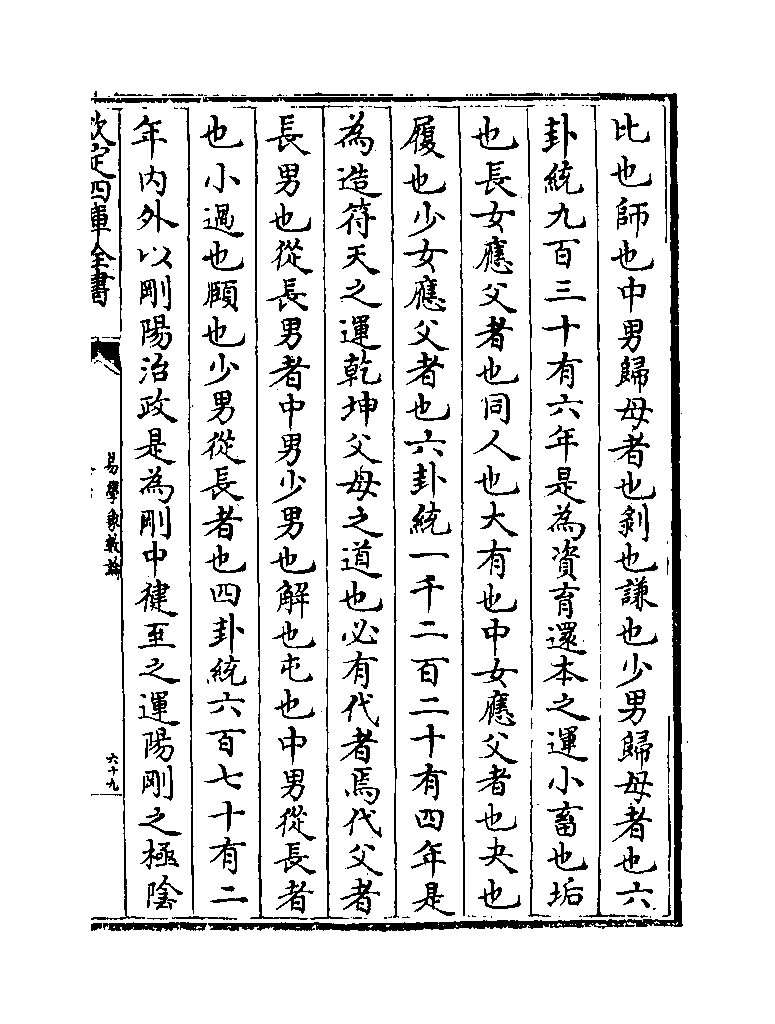 比也師也中男歸母者也剝也謙也少男歸母者也六
卦統九百三十有六年是為資育還本之運小畜也姤
也長女應父者也同人也大有也中女應父者也夬也
履也少女應父者也六卦統一千二百二十有四年是
為造符天之運乾坤父母之道也必有代者焉代父者
長男也從長男者中男少男也解也屯也中男從長者
也小過也頤也少男從長者也四卦統六百七十有二
年内外以剛陽治政是為剛中健至之運陽剛之極陰
欽定四庫全書
易學象數論
六十九